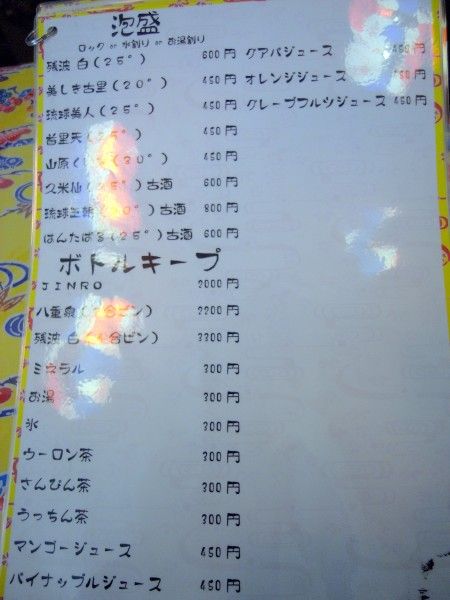 泡盛
ロック or 水割り or お湯割り
残波 白(25°) 600円
美しき古里(20°) 450円
琉球美人(25°) 450円
450円
山原 450円
久米仙 古酒 600円
琉球王朝 古酒 800円
はんたばる(25°)古酒 600円
グアバジュース 450円
オレンジジュース 円
グレープフルツジュース 450円
ボトルキープ
JINRO 2000円
八重泉 合ビン) 2200円
残波 白 合ビン) 3200円
ミネラル 300円
お湯 300円
氷 300円
ウーロン茶 300円
さんぴん茶 300円
うっちん茶 300円
マンゴージュース 450円
パイナップルジュース 450円